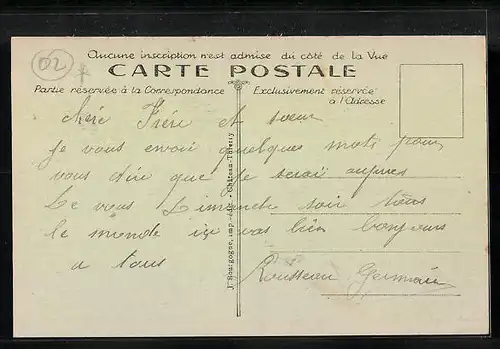 02
Aucune inscription n'est admise du côté de la Vue
CARTE POSTALE
Partie réservée à la Correspondance
Exclusivement réservée
à l'Adresse
chère Frère et soeur
Je vous envoi quelques mots pour
vous dire que je serai aupres
De vous Dimanche soir tous
le monde ici vas bien bonjours
a tous
Rousseau Germain
J. Bourgogne, imp.-édit. • Château-Thierry